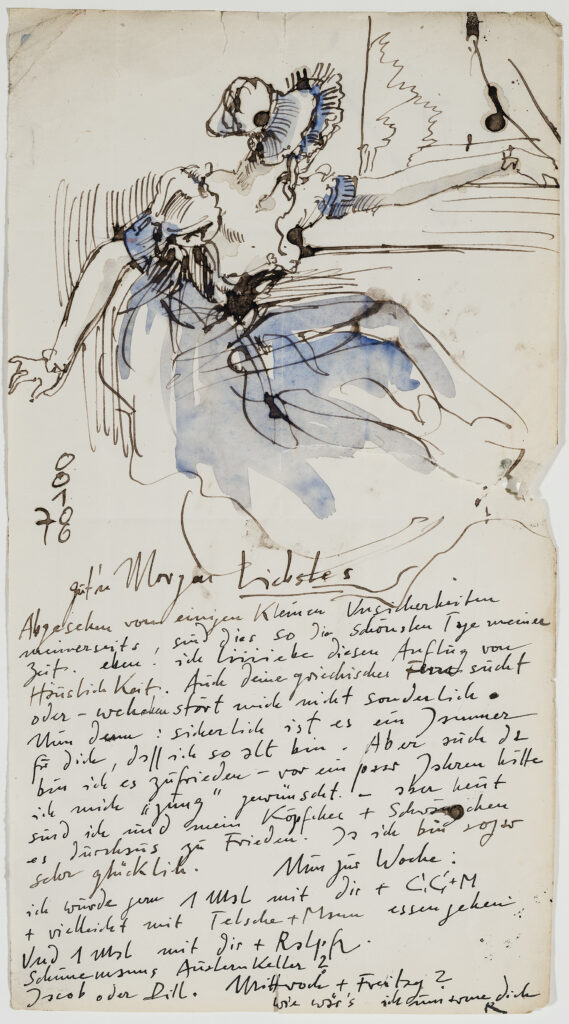 gut'n Morgen Liebstes
Abgesehen von einigen kleinen Unsicherheiten
meinerseits, sind dies so die schönsten Tage meiner
Zeit. eben. ich liiiiebe diesen Anflug von
Häuslichkeit. Auch deine griechische sucht
oder - stört mich nicht sonderlich.
Nun denn : sicherlich ist es ein Jammer
für dich, daß ich so alt bin. Aber auch da
bin ich es zufrieden - vor ein paar Jahren hätte
ich mich "jung" gewünscht. - aber heut
sind ich und mein Köpfchen + Schwänzchen
es durchaus zu Frieden. Ja ich bin sogar
sehr glücklich. Nun zur Woche :
ich würde gern 1 Mal mit dir + C,C,+M
+ vielleicht mit Telsche + Mann essen gehen
Und 1 Mal mit dir +
Schümanns Austernkeller?
Jacob oder Dill. Mittwoch + Freitag?
wie wär's ich umarme dich